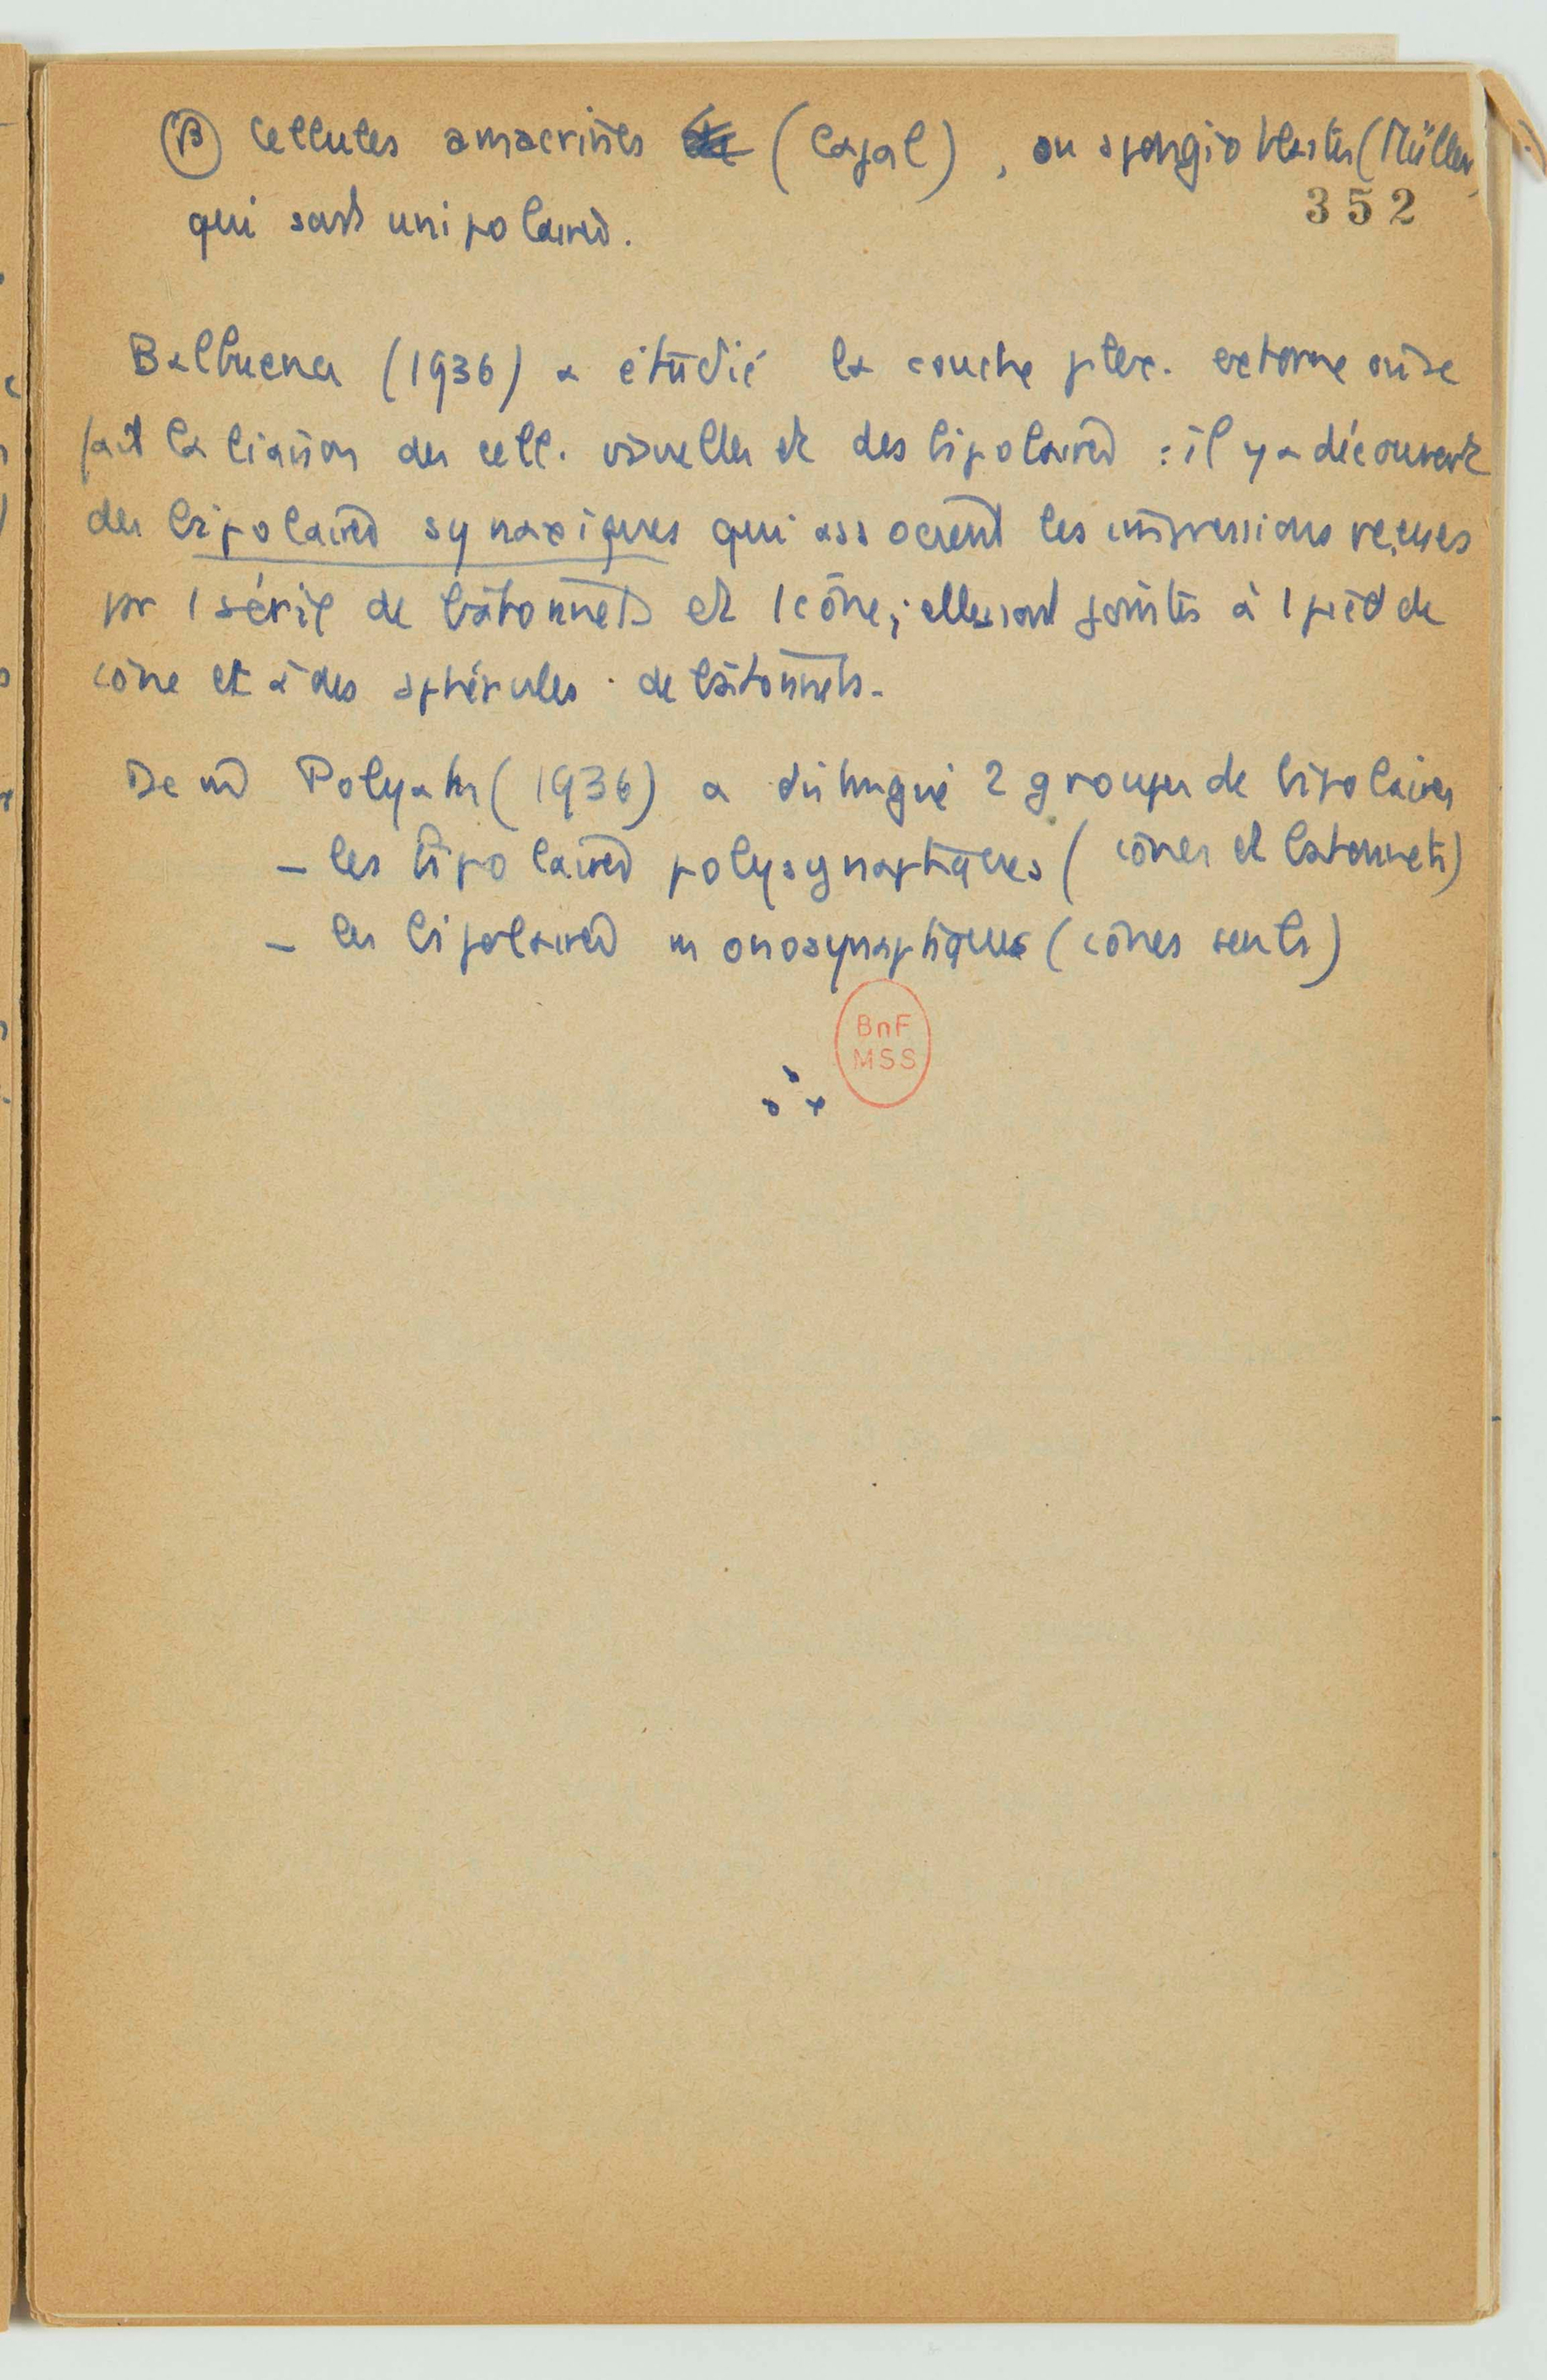 β Cellules amacrines (Cajal), ou spongioblastes (Müller)
352
qui sont unipolaires.
Balbuena (1936) a étudié la couche plex. externe où se
fait la liaison des cell. visuelles et des bipolaires : il y a découvert
des bipolaires synaxiques qui associent les impressions reçues
pr 1 série de bâtonnets et 1 cône ; elles sont jointes à 1 pied de
cône et à des sphérules de bâtonnets.
De m̂ Polyak (1936) a distingué 2 groupes de bipolaires
– les bipolaires polysynaptiques (cônes et bâtonnets)
– les bipolaires monosynaptiques (cônes seuls)
BnF
MSS